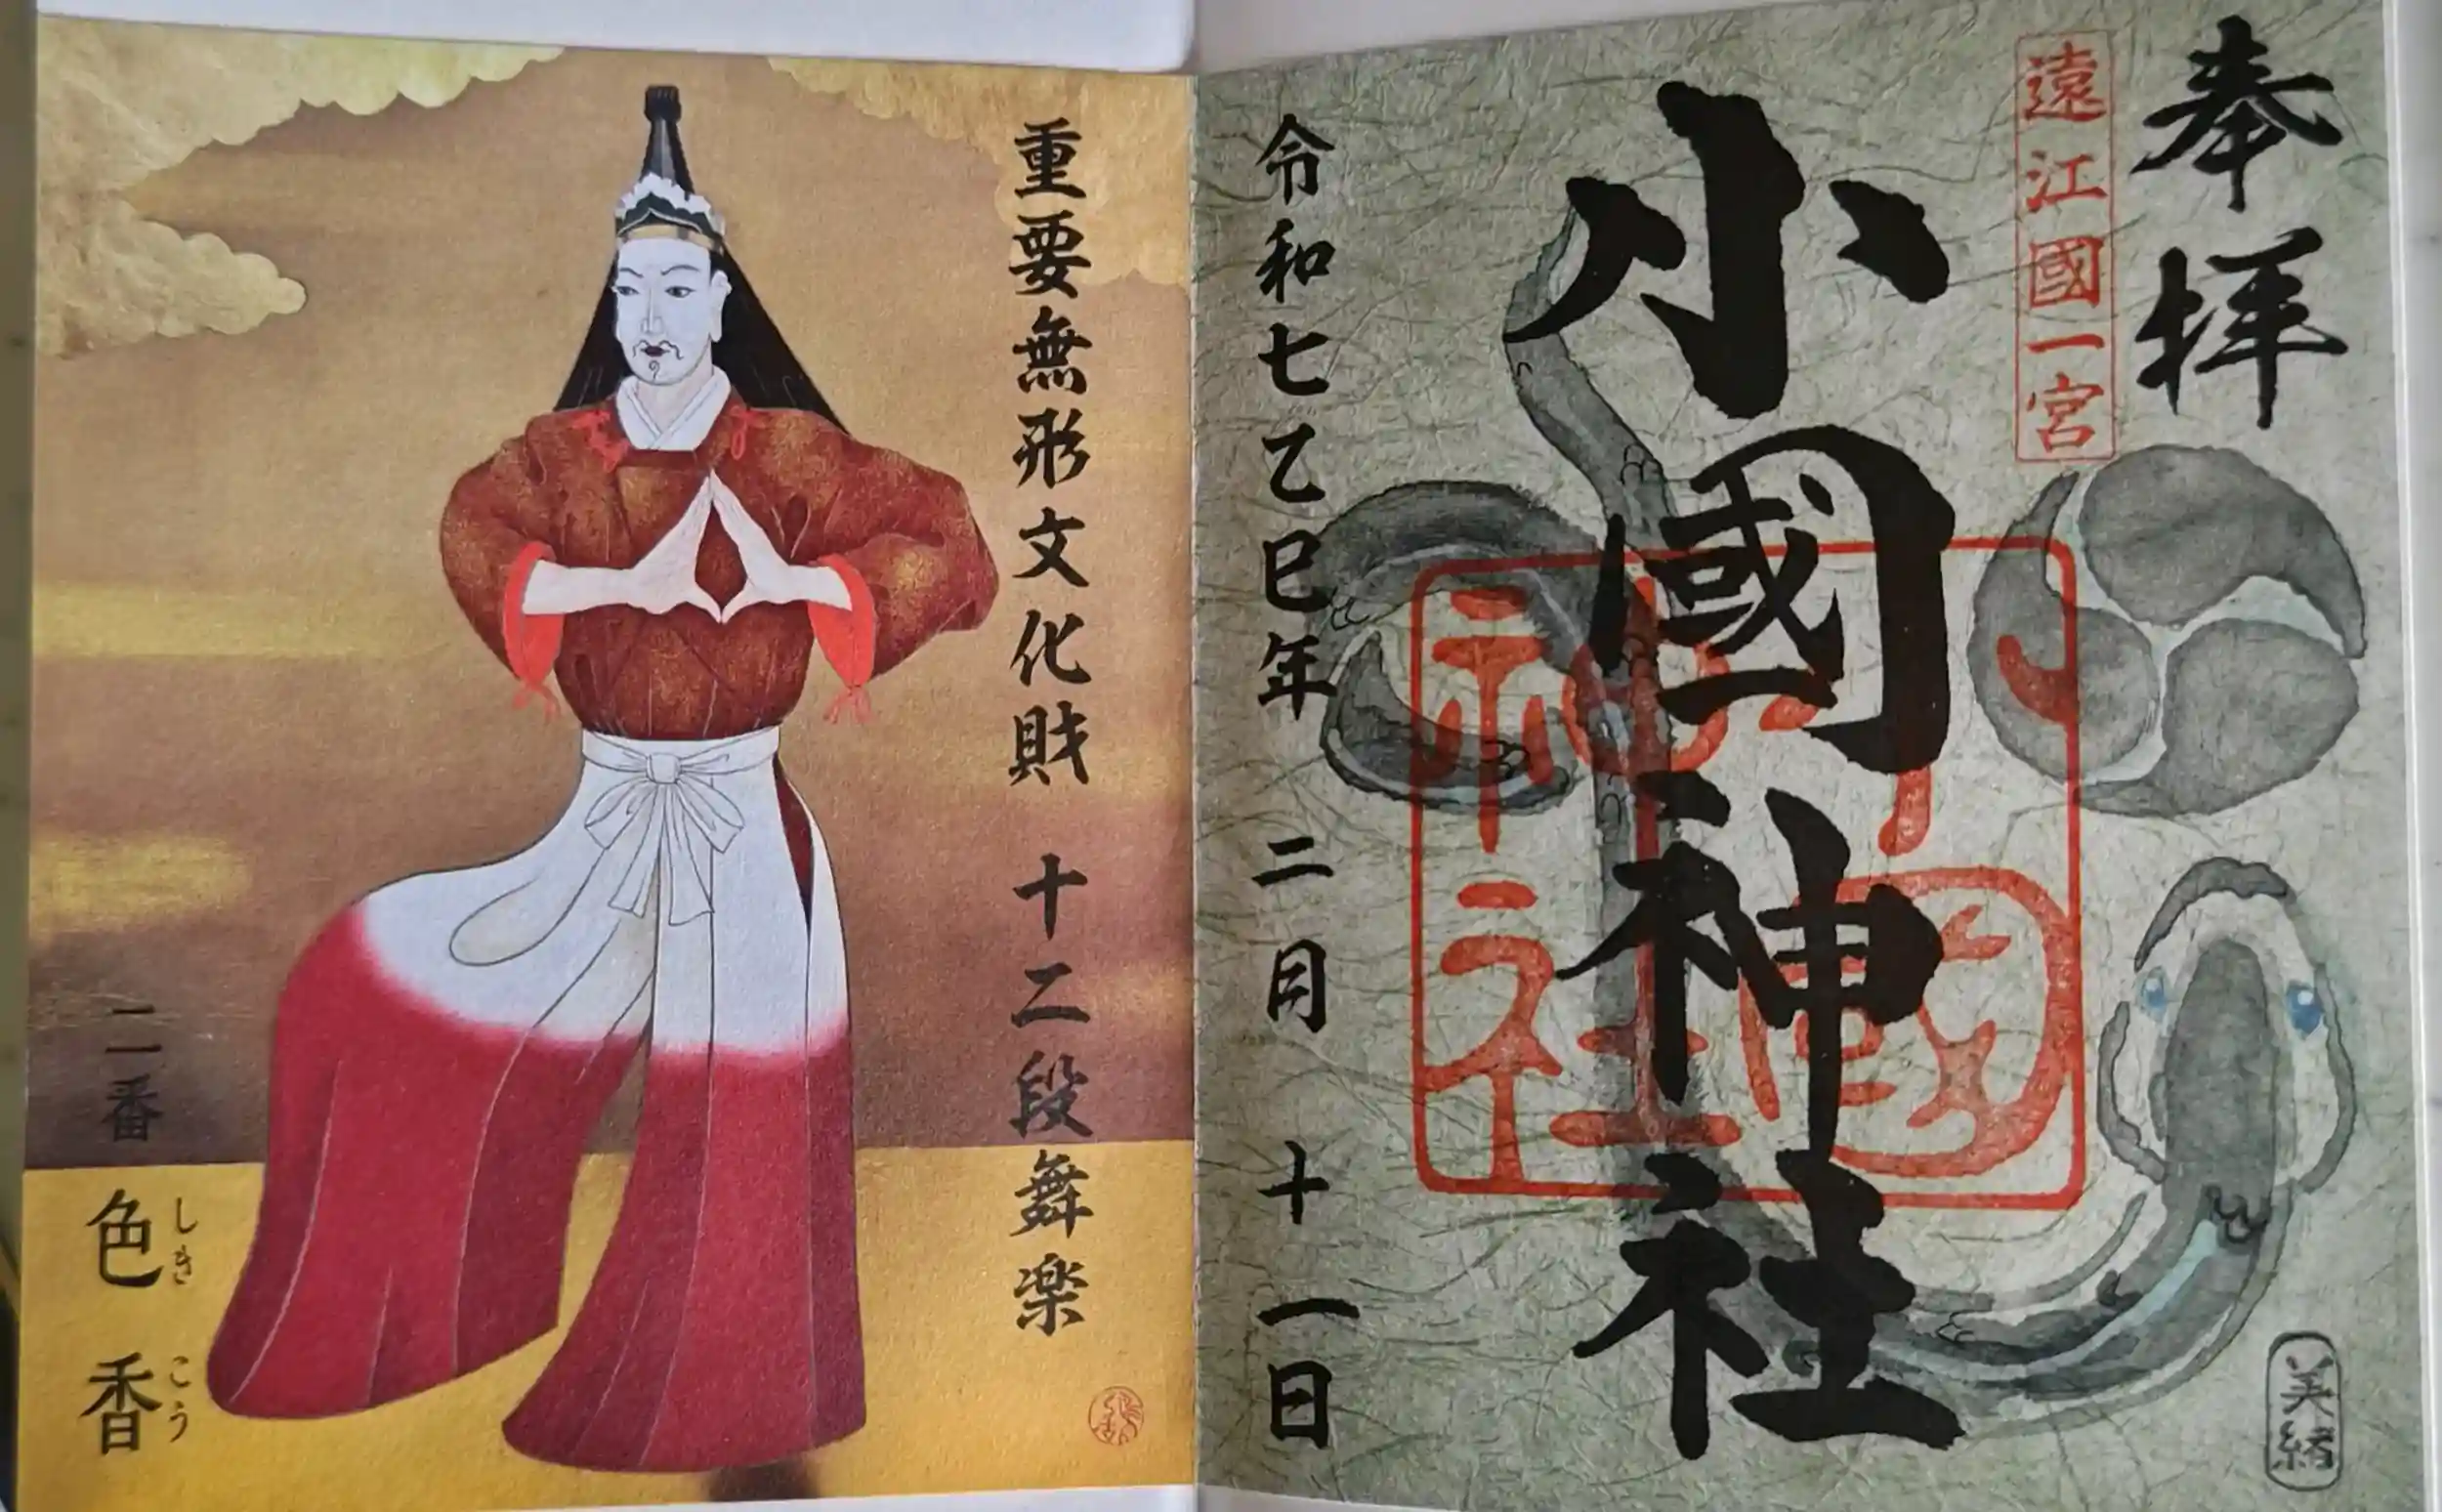 奉拝
遠江國一宮
小國神社
令和七乙巳年 二月 十一日
美緒
重要無形文化財 十二段舞楽
二番
色香
しきこう